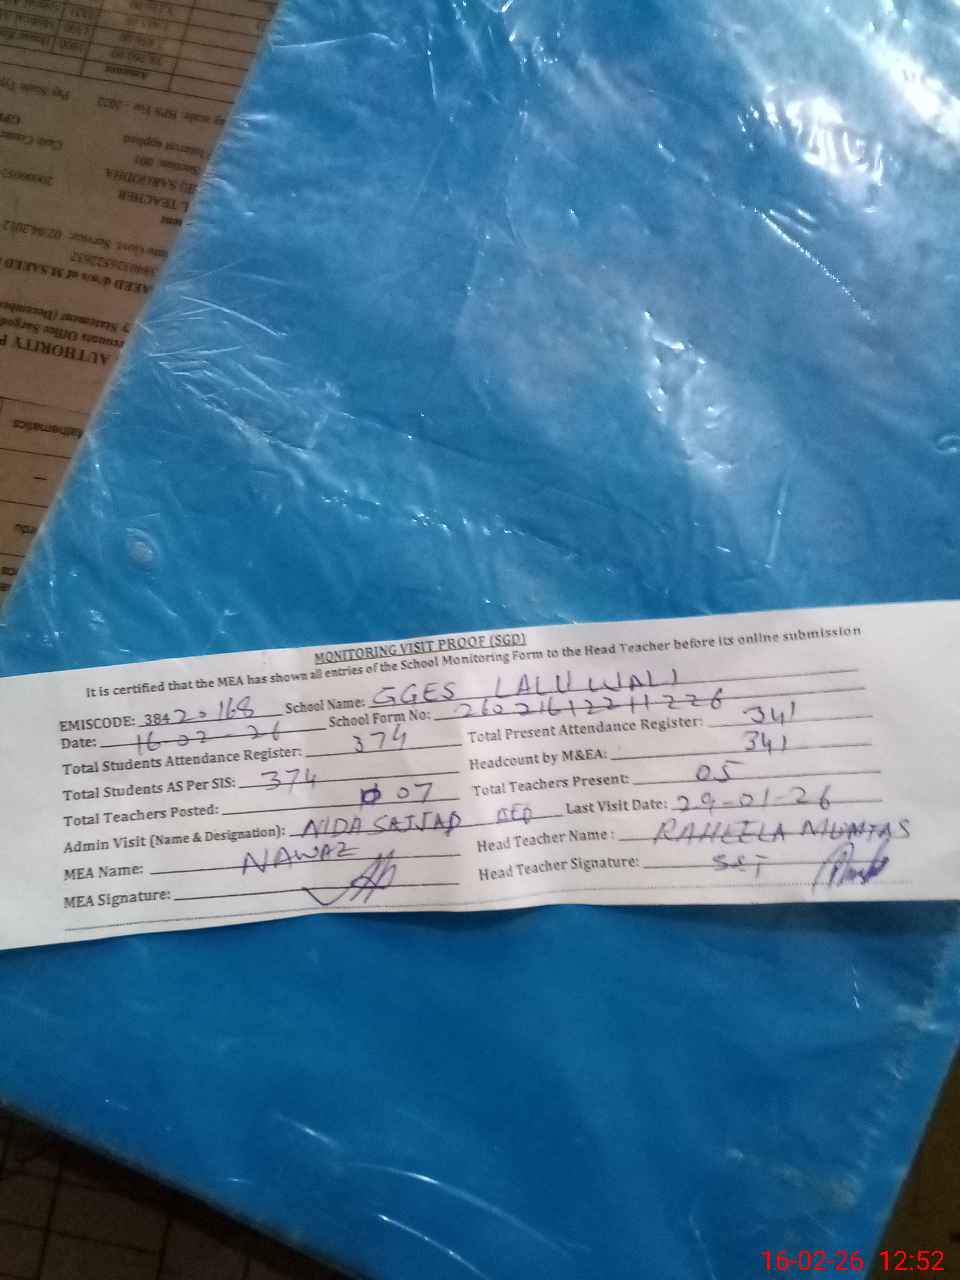 MONITORING VISIT PROOF (SGD)
It is certified that the MEA has shown all entries of the School Monitoring Form to the Head Teacher before its online submission
EMISCODE: 38420168 School Name: GGES LALUWALI
Date: 16-02-26 School Form No: 26021612211226
Total Students Attendance Register: 374 Total Present Attendance Register: 341
Total Students AS Per SIS: 374 Headcount by M&EA: 341
Total Teachers Posted: 07 Total Teachers Present: 05
Admin Visit (Name & Designation): NIDA SAJJAD AEO Last Visit Date: 29-01-26
MEA Name: NAWAZ Head Teacher Name : RAHEELA MUMTAS
MEA Signature: Head Teacher Signature: SST
Amount
Pay scale: BPS For - 2022 Pay Scale Type
Section: 001
SARGODHA
TEACHER
Govt. Service: 02.04.2012
d/w/s of M SAEED
Statement (December
AUTHORITY
16-02-26 12:52